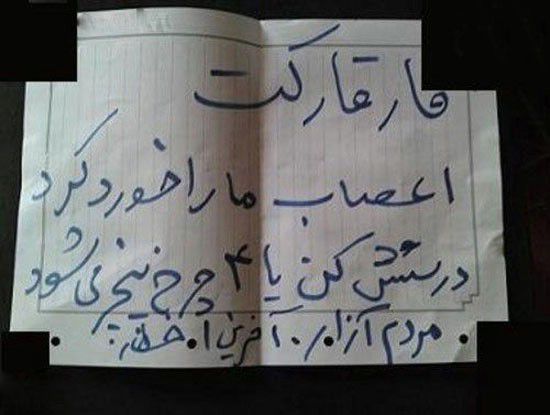 قارقارکت
اعصاب ما را خورد کرد
درستش کن یا ۴ چرخ پنچر می شود
مردم آزار. آخرین اخطار.